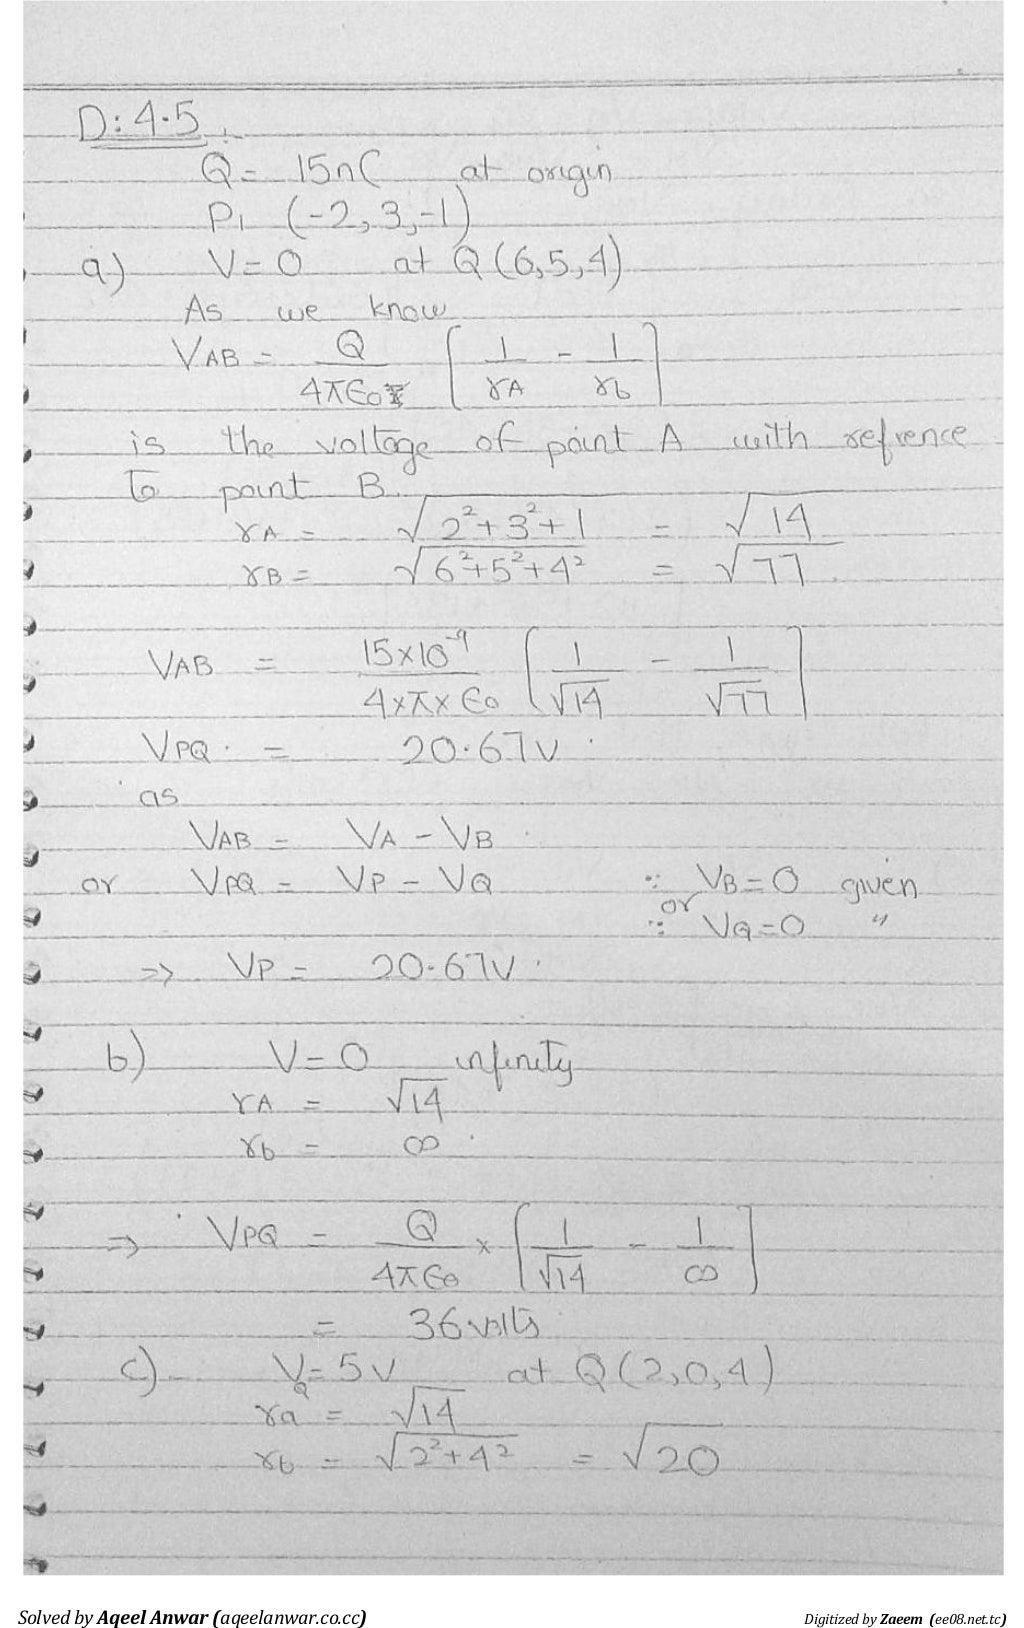 D: 4.5
Q = 15nC at origin
P1 (-2, 3, -1)
a) V=0 at Q(6,5,4)
As we know
VAB = Q/4π∈0 [1/rA - 1/rb]
is the voltage of point A with refrence
to point B.
rA = √(2²+3²+1) = √14
rB = √(6²+5²+4²) = √77
VAB = 15×10⁻⁹/4×π×∈0 [1/√14 - 1/√77]
VPQ = 20.67V
as
VAB = VA - VB
or VPQ = VP - VQ ∵ VB=0 given
or ∵ VQ=0 "
=> VP = 20.67V
b) V=0 infinity
rA = √14
rb = ∞
=> VPQ = Q/4π∈0 × [1/√14 - 1/∞]
= 36 volts
c) VQ=5V at Q(2,0,4)
ra = √14
rb = √(2²+4²) = √20
Solved by Aqeel Anwar (aqeelanwar.co.cc)
Digitized by Zaeem (ee08.net.tc)